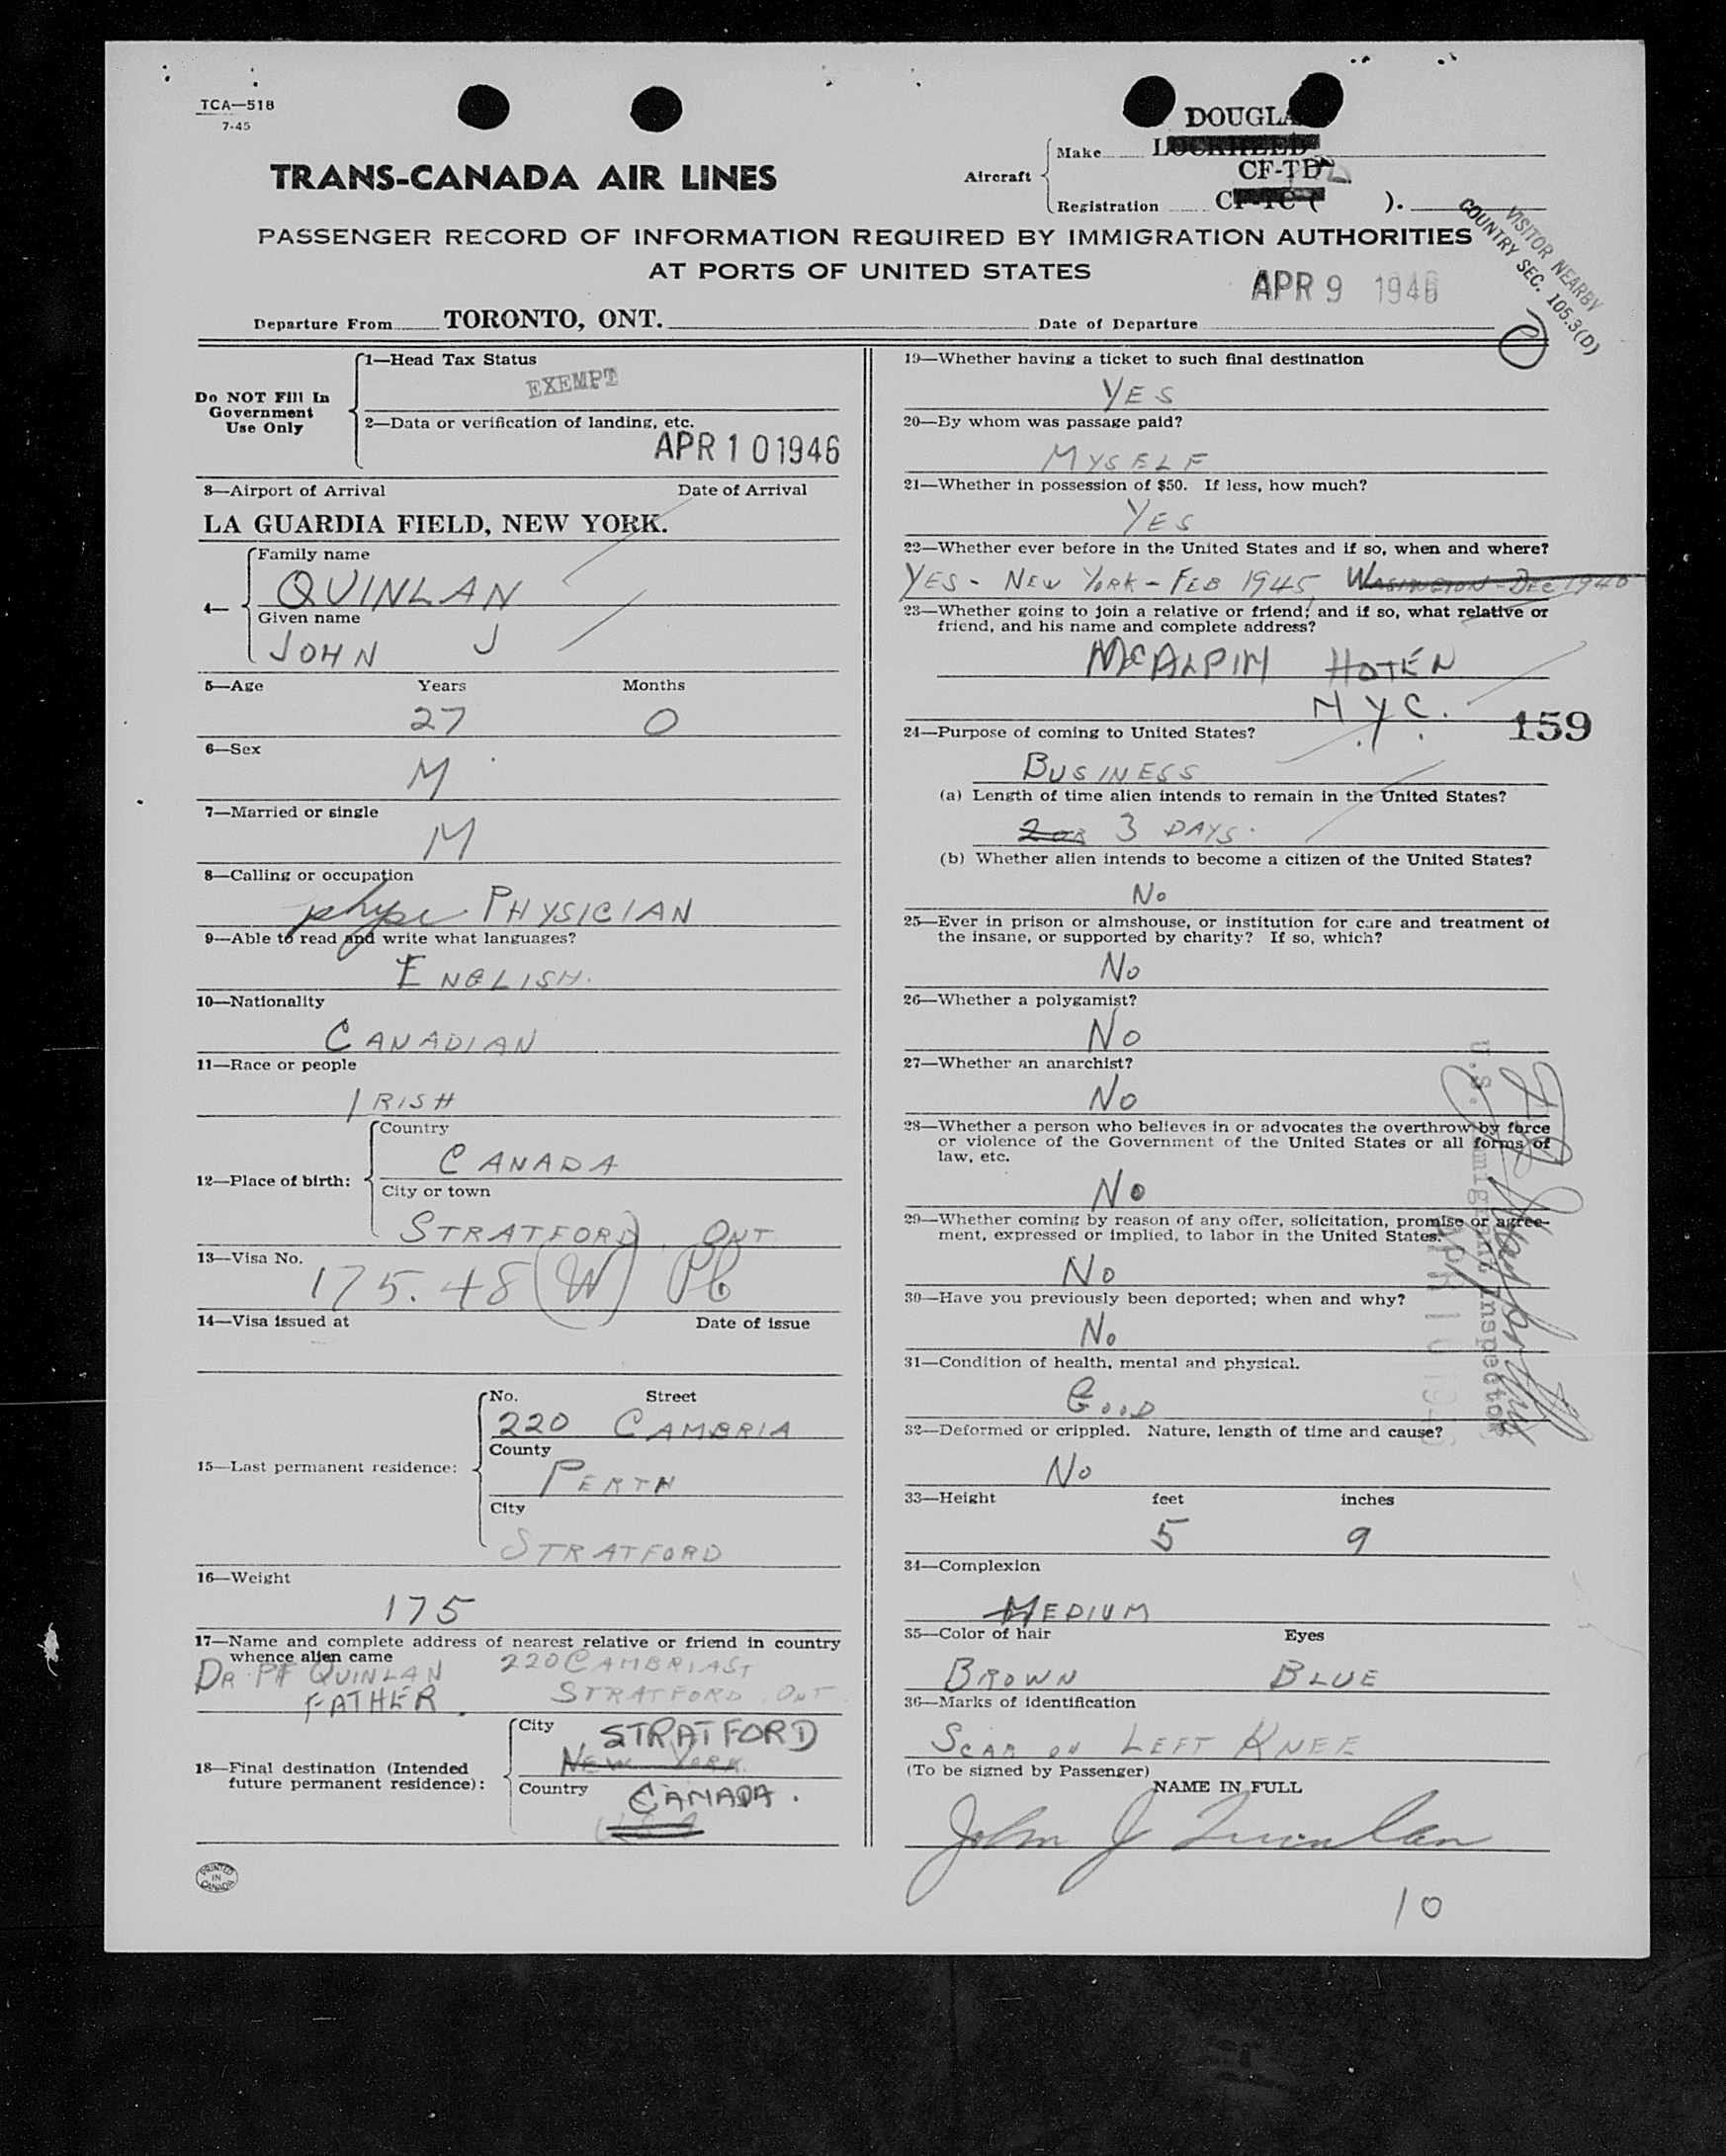 TCA—518
7-45
DOUGLA
Aircraft
Make LOCKHEED
CF-TD
Registration CF-TC ( ).
TRANS-CANADA AIR LINES
PASSENGER RECORD OF INFORMATION REQUIRED BY IMMIGRATION AUTHORITIES
AT PORTS OF UNITED STATES
VISITOR NEARBY
COUNTRY SEC. 105.3(D)
APR 9 1946
Departure From TORONTO, ONT. Date of Departure
Do NOT Fill In
Government
Use Only
1—Head Tax Status
EXEMPT
2—Data or verification of landing, etc.
APR 10 1946
3—Airport of Arrival Date of Arrival
LA GUARDIA FIELD, NEW YORK.
4—
Family name
QUINLAN
Given name
JOHN J
5—Age Years Months
27 0
6—Sex
M
7—Married or single
M
8—Calling or occupation
PHYSICIAN
9—Able to read and write what languages?
ENGLISH.
10—Nationality
CANADIAN
11—Race or people
IRISH
12—Place of birth:
Country
CANADA
City or town
STRATFORD, ONT
13—Visa No.
175.48 (W)
14—Visa issued at Date of issue
15—Last permanent residence:
No. Street
220 CAMBRIA
County
PERTH
City
STRATFORD
16—Weight
175
17—Name and complete address of nearest relative or friend in country
whence alien came
DR PF QUINLAN 220 CAMBRIA ST
FATHER. STRATFORD, ONT.
18—Final destination (Intended
future permanent residence):
City
STRATFORD
NEW YORK
Country
CANADA.
USA
PRINTED
IN
CANADA
19—Whether having a ticket to such final destination
YES
20—By whom was passage paid?
MYSELF
21—Whether in possession of $50. If less, how much?
YES
22—Whether ever before in the United States and if so, when and where?
YES - NEW YORK - FEB 1945, WASHINGTON - DEC 1940
23—Whether going to join a relative or friend; and if so, what relative or
friend, and his name and complete address?
MCALPIN HOTEN
N.Y.C.
159
24—Purpose of coming to United States?
BUSINESS
(a) Length of time alien intends to remain in the United States?
2 OR 3 DAYS.
(b) Whether alien intends to become a citizen of the United States?
NO
25—Ever in prison or almshouse, or institution for care and treatment of
the insane, or supported by charity? If so, which?
NO
26—Whether a polygamist?
NO
27—Whether an anarchist?
NO
28—Whether a person who believes in or advocates the overthrow by force
or violence of the Government of the United States or all forms of
law, etc.
NO
29—Whether coming by reason of any offer, solicitation, promise or agree-
ment, expressed or implied, to labor in the United States.
NO
30—Have you previously been deported; when and why?
NO
31—Condition of health, mental and physical.
GOOD
32—Deformed or crippled. Nature, length of time and cause?
NO
U.S. Immigrant Inspector
APR 10 194
33—Height feet inches
5 9
34—Complexion
MEDIUM
35—Color of hair Eyes
BROWN BLUE
36—Marks of identification
SCAR ON LEFT KNEE
(To be signed by Passenger)
NAME IN FULL
John J Quinlan
10